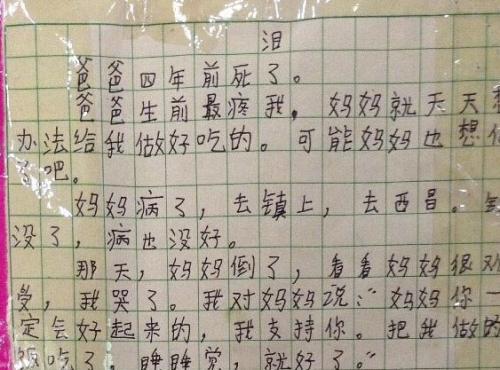 泪
爸爸四年前死了。
爸爸生前最疼我，妈妈就天天
办法给我做好吃的。可能妈妈也想
爸吧。
妈妈病了，去镇上，去西昌。
没了，病也没好。
那天，妈妈倒了，看看妈妈很难
受，我哭了。我对妈妈说：“妈妈你一
定会好起来的，我支持你。把我做的
饭吃了，睡睡觉，就好了。”